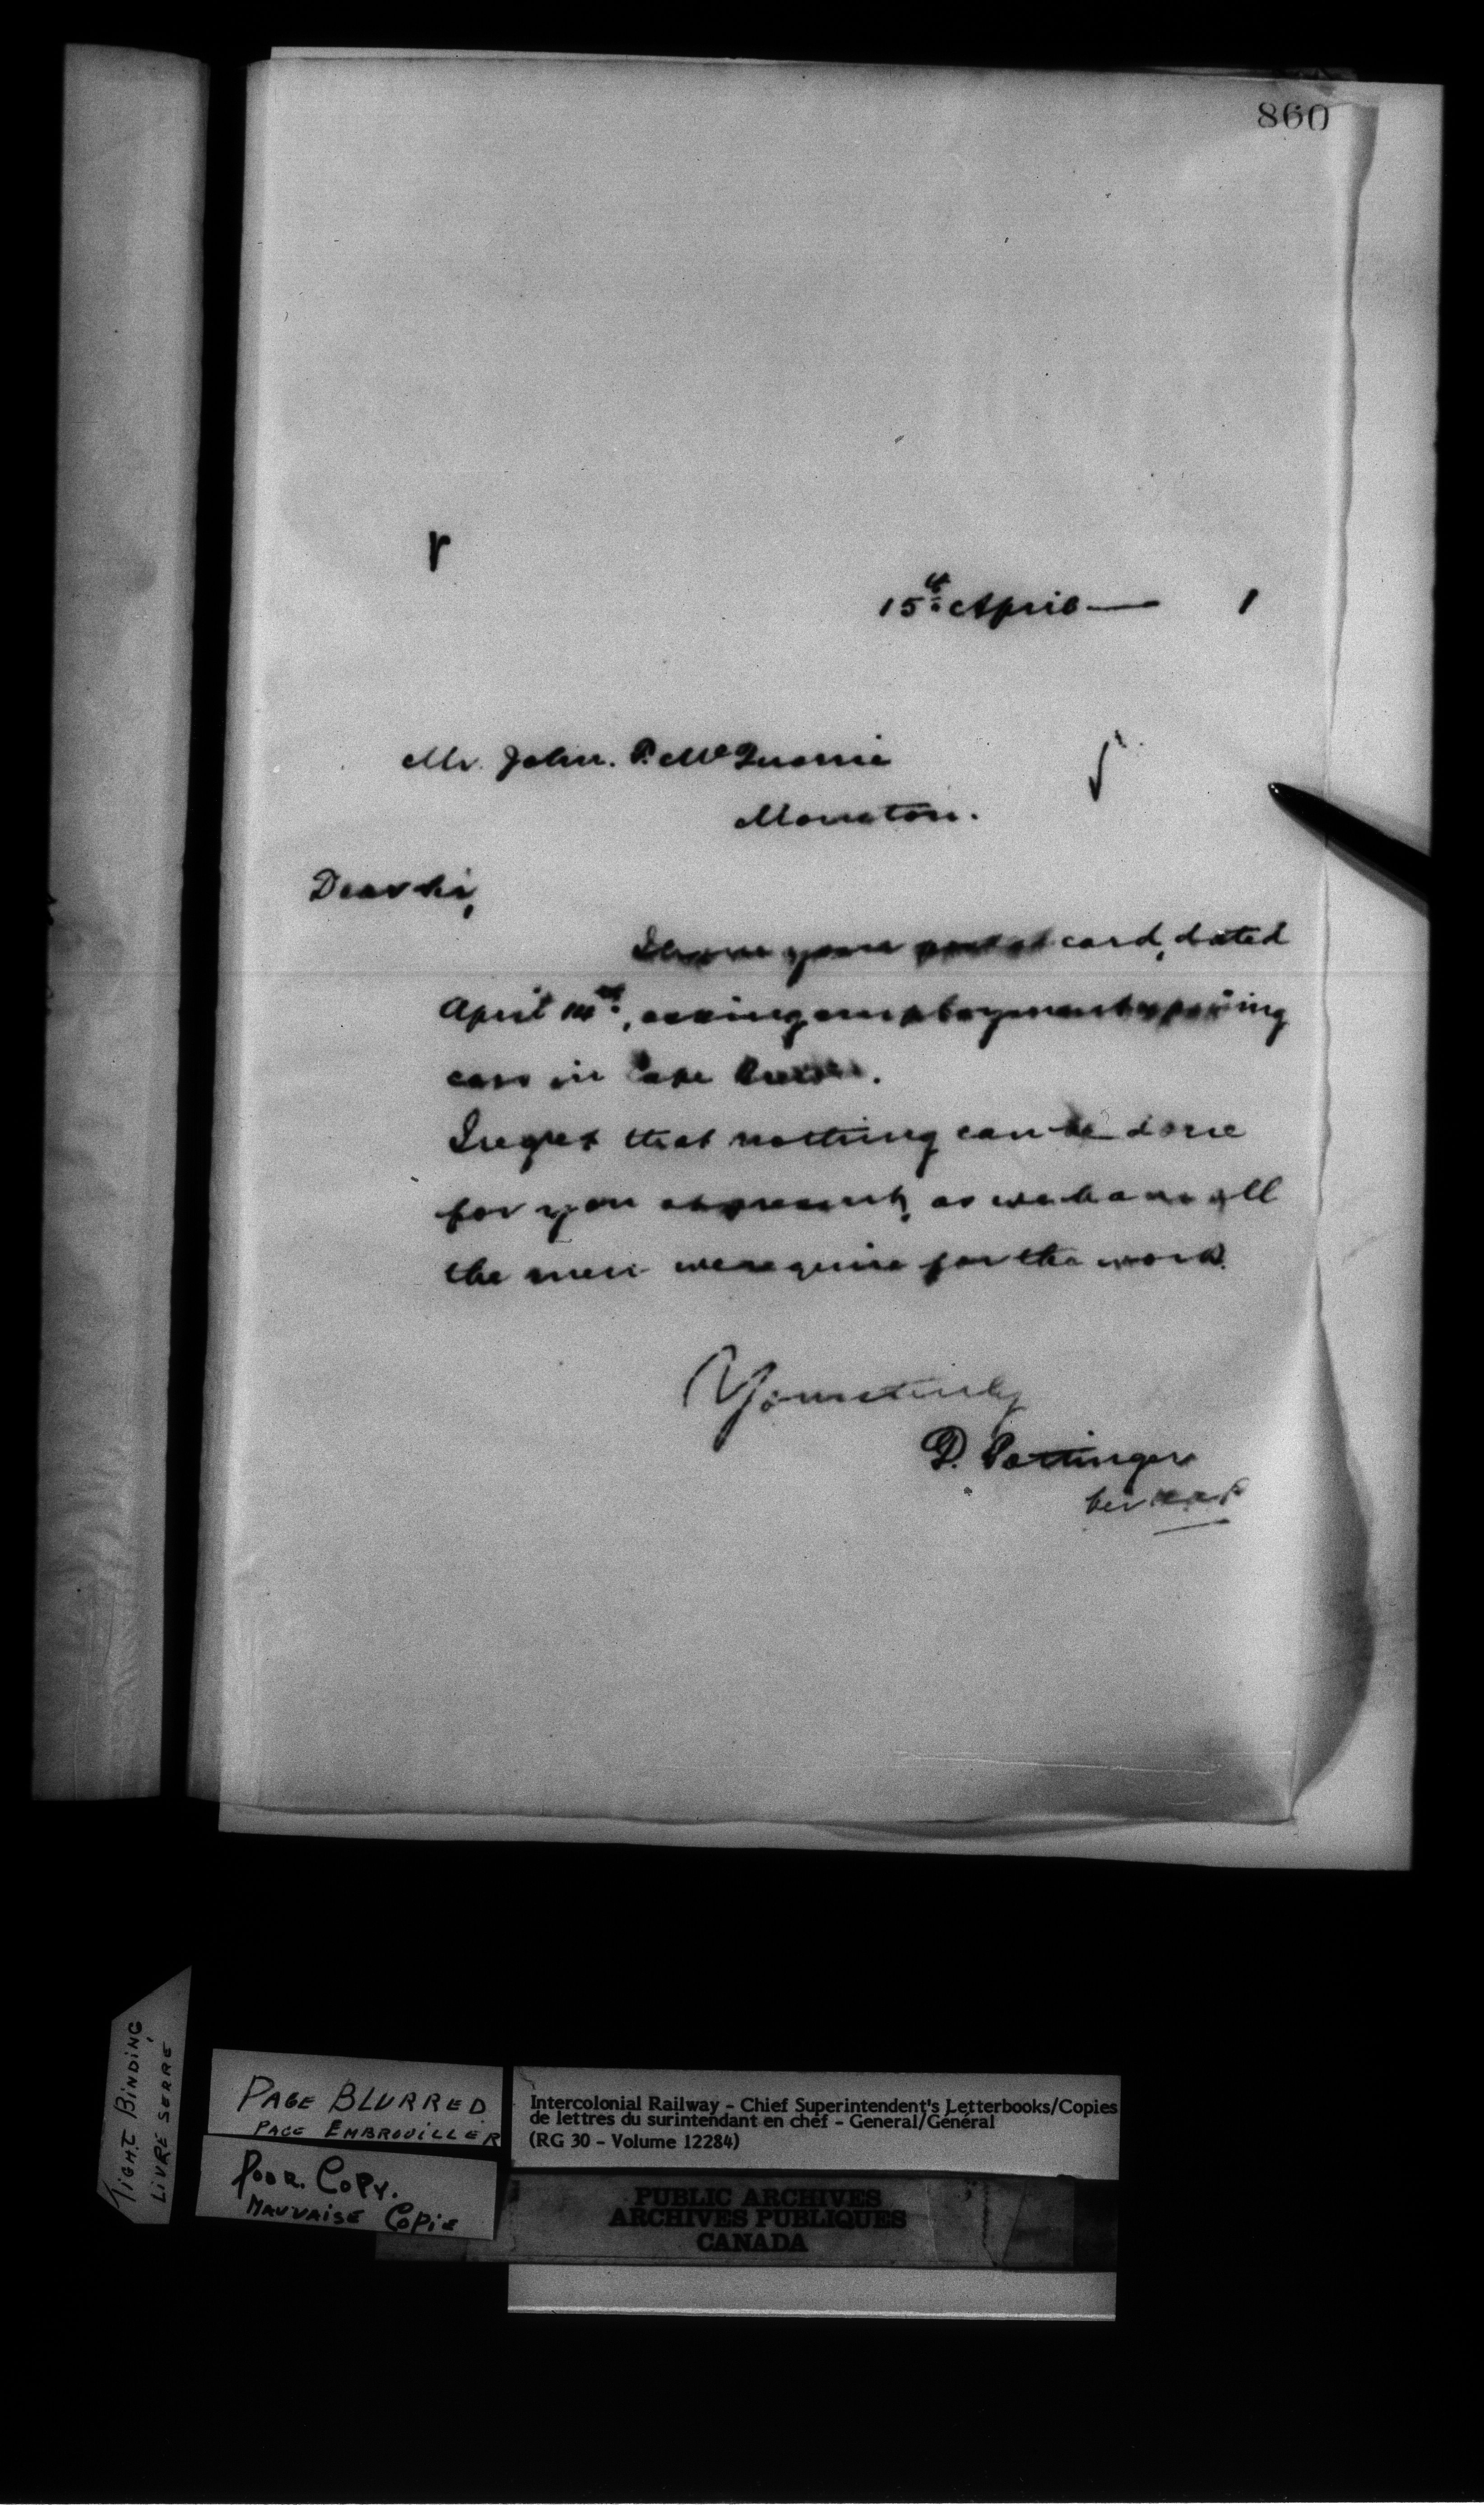 860
15th April — 1
Mr. John. P. McQuarrie
Moncton.
Dear Sir,
I have your postal card, dated
April 14th, asking employment repairing
cars in Cape Breton.
I regret that nothing can be done
for you at present, as we have all
the men we require for the work.
Yours truly
D. Pottinger
per
TIGHT BINDING
LIVRE SERRE
PAGE BLURRED
PAGE EMBROUILLER
POOR. COPY.
MAUVAISE COPIE
Intercolonial Railway - Chief Superintendent's Letterbooks/Copies
de lettres du surintendant en chef - General/Général
(RG 30 - Volume 12284)
PUBLIC ARCHIVES
ARCHIVES PUBLIQUES
CANADA